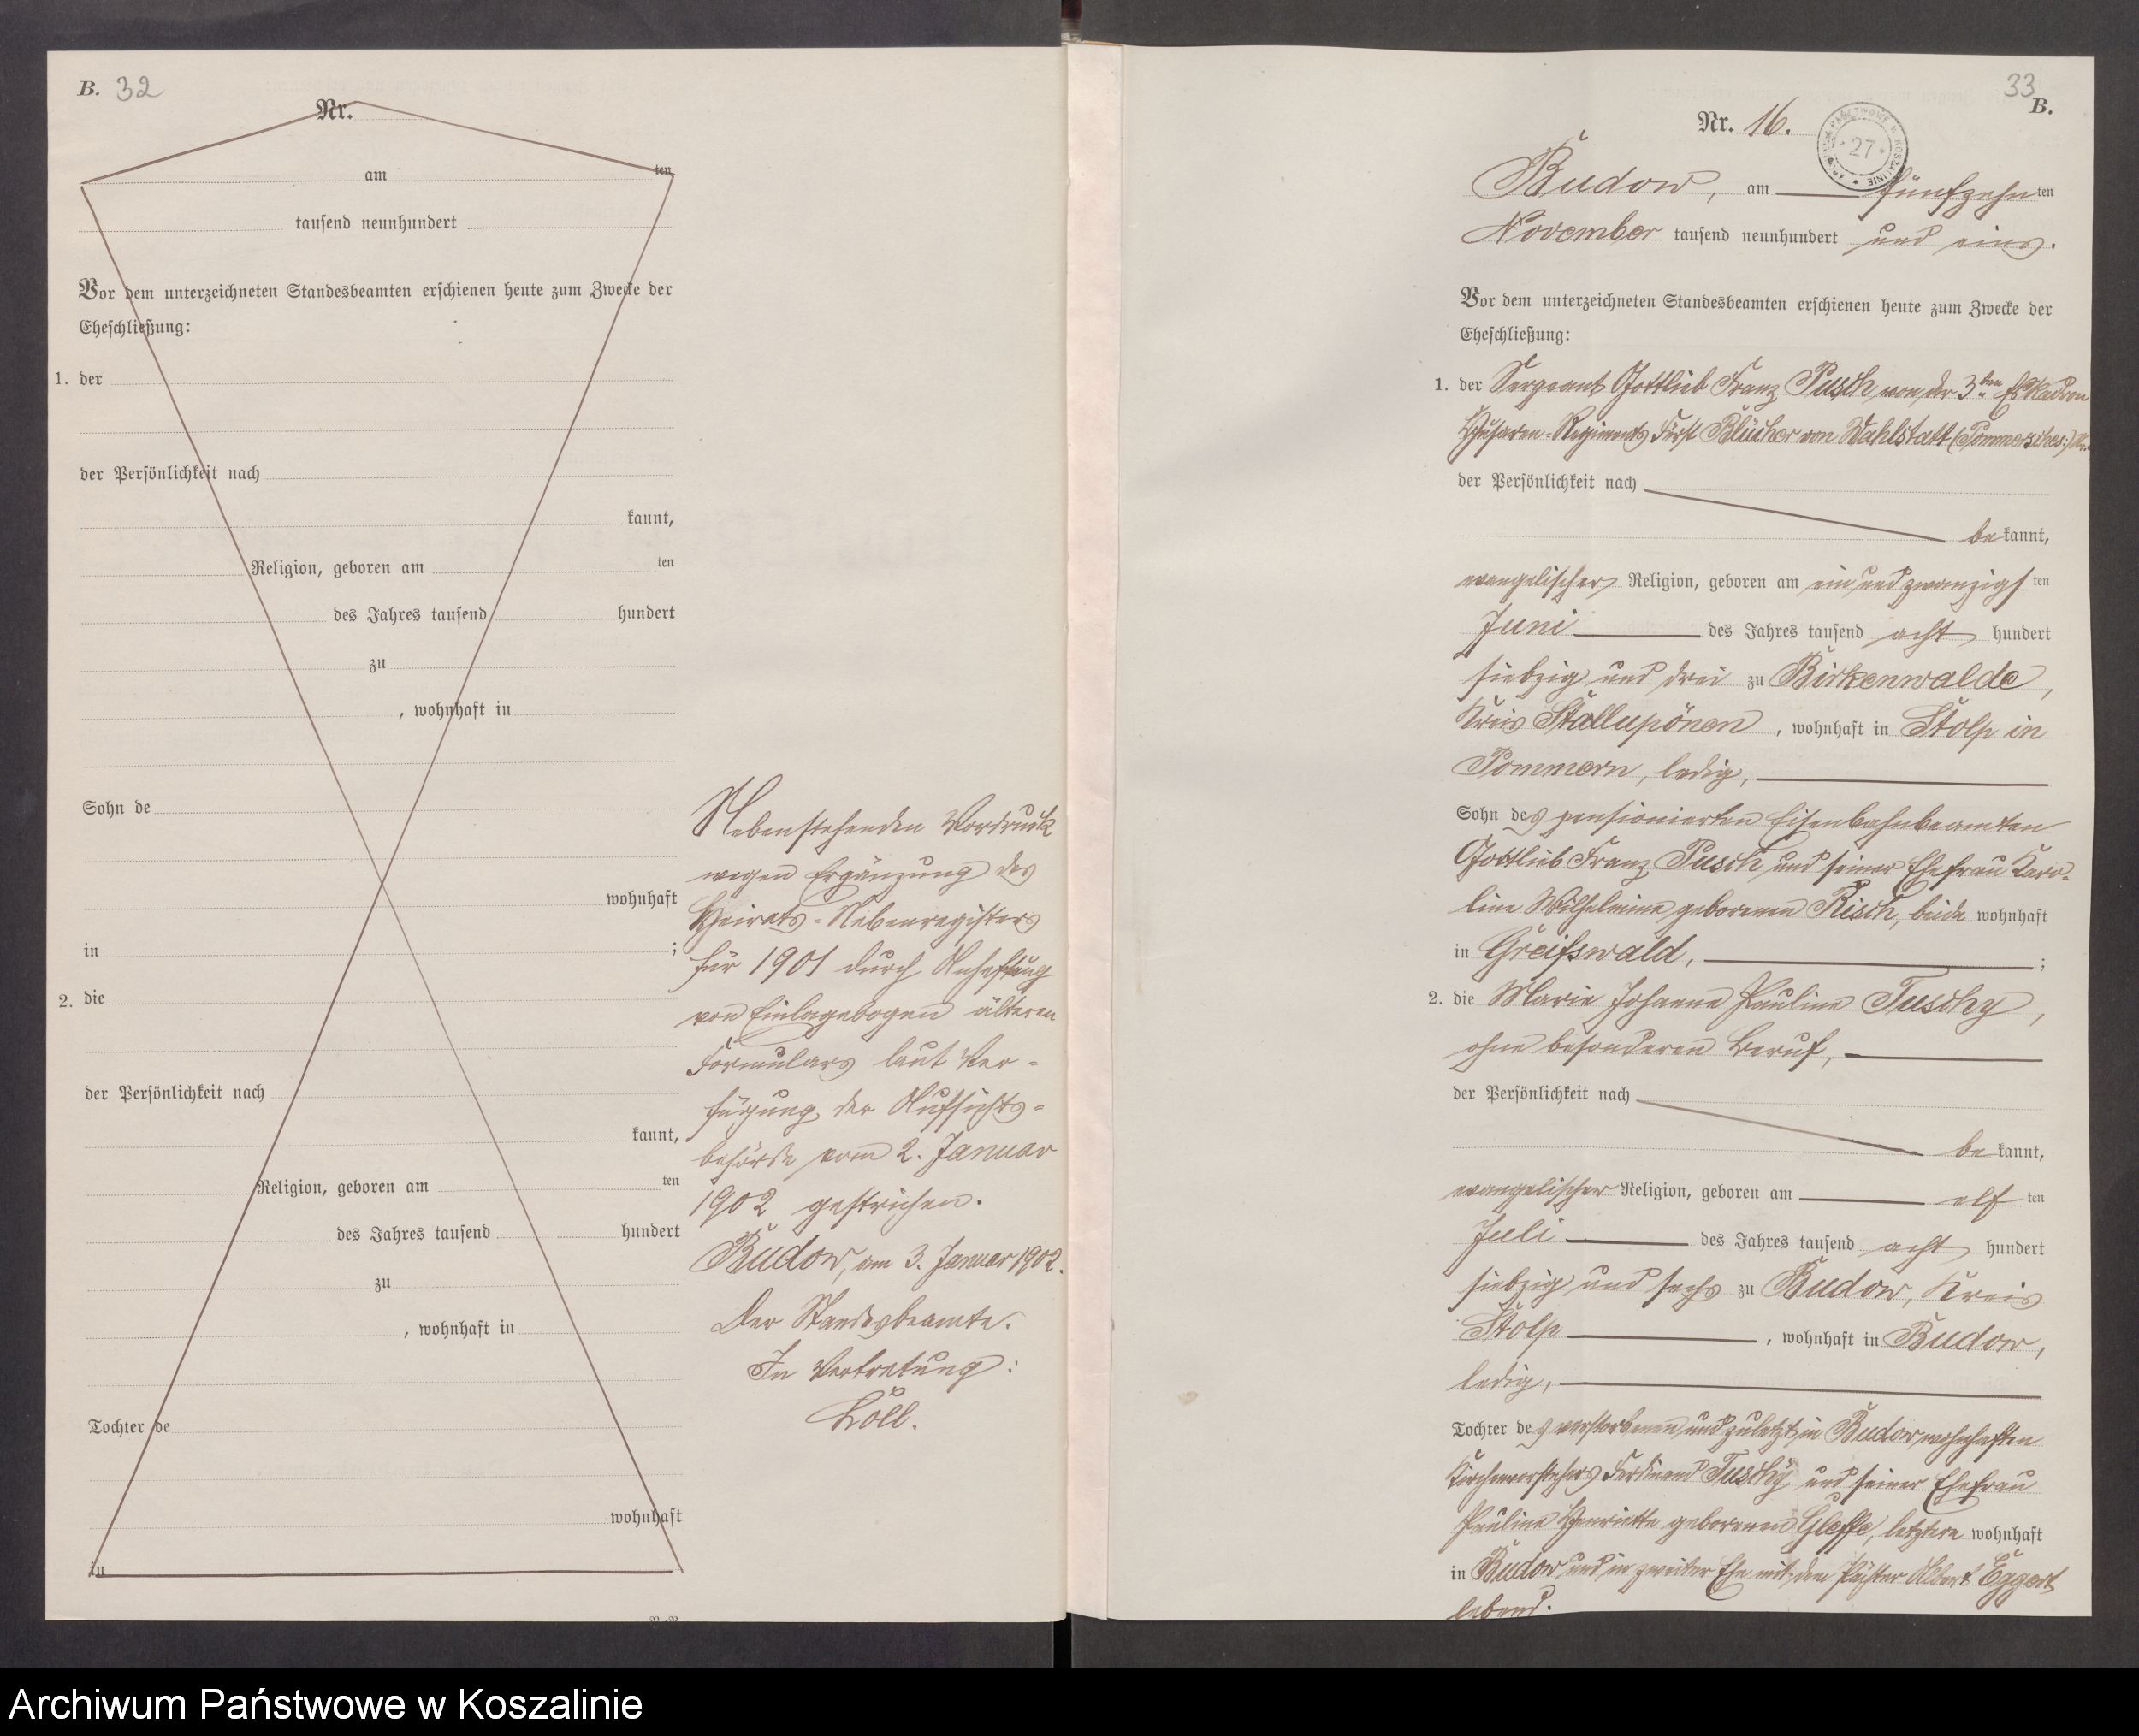 B. 32
Nr.
am ten
tausend neunhundert
Vor dem unterzeichneten Standesbeamten erschienen heute zum Zwecke der
Eheschließung:
1. der
der Persönlichkeit nach
kannt,
Religion, geboren am ten
des Jahres tausend hundert
zu
, wohnhaft in
Sohn de
wohnhaft
in ;
2. die
der Persönlichkeit nach
kannt,
Religion, geboren am ten
des Jahres tausend hundert
zu
, wohnhaft in
Tochter de
wohnhaft
in
Nebenstehenden Vordruck
wegen Ergänzung des
Heirats-Nebenregisters
für 1901 durch Anheftung
von Einlagebogen älteren
Formulars laut Ver-
fügung der Aufsichts-
behörde vom 2. Januar
1902 gestrichen.
Budow, am 3. Januar 1902.
Der Standesbeamte.
In Vertretung:
Löll.
33
B.
Nr. 16.
27
Budow, am fünfzehn ten
November tausend neunhundert und eins.
Vor dem unterzeichneten Standesbeamten erschienen heute zum Zwecke der
Eheschließung:
1. der Sergeant Gottlieb Franz Pusch von der 3ten Eskadron
Husaren-Regiments Fürst Blücher von Wahlstatt (Pommersches)
der Persönlichkeit nach
be kannt,
evangelischer Religion, geboren am ein und zwanzigs ten
Juni des Jahres tausend acht hundert
siebzig und drei zu Birkenwalde,
Kreis Stallupönen, wohnhaft in Stolp in
Pommern, ledig,
Sohn des pensionierten Eisenbahnbeamten
Gottlieb Franz Pusch und seiner Ehefrau Karo-
line Wilhelmine geborenen Risch, beide wohnhaft
in Greifswald, ;
2. die Marie Johanna Pauline Tuschy,
ohne besonderen Beruf,
der Persönlichkeit nach
be kannt,
evangelischer Religion, geboren am elf ten
Juli des Jahres tausend acht hundert
siebzig und sechs zu Budow, Kreis
Stolp, wohnhaft in Budow,
ledig,
Tochter des verstorbenen und zuletzt in Budow wohnhaften
Kirchenvorstehers Ferdinand Tuschy und seiner Ehefrau
Pauline Henriette geborenen Gleffe, letztere wohnhaft
in Budow und in zweiter Ehe mit dem Pächter Albert Eggert
lebend.
Archiwum Państwowe w Koszalinie